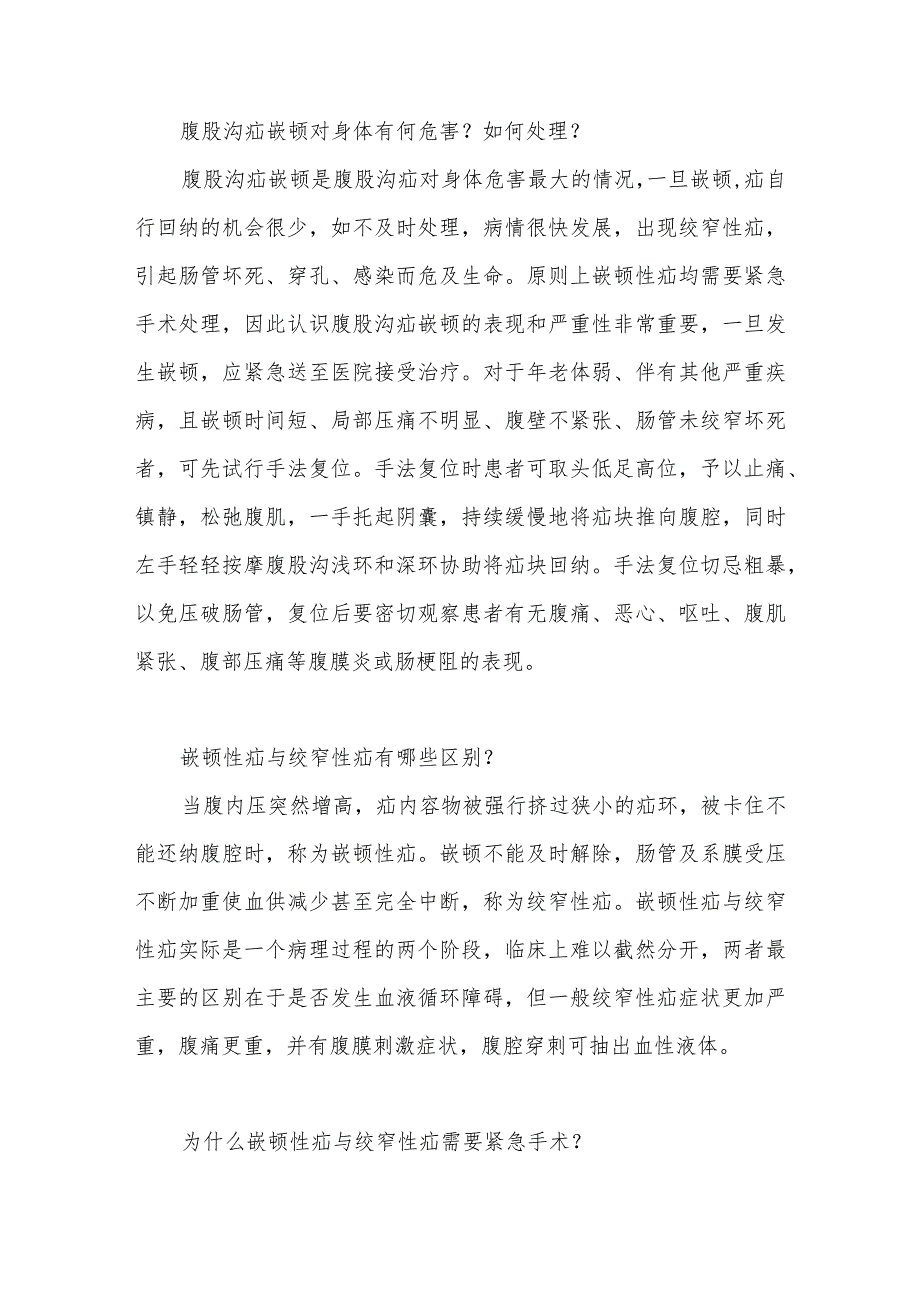 腹股沟疝嵌顿对身体有何危害？如何处理？
腹股沟疝嵌顿是腹股沟疝对身体危害最大的情况，一旦嵌顿，疝自
行回纳的机会很少，如不及时处理，病情很快发展，出现绞窄性疝，
引起肠管坏死、穿孔、感染而危及生命。原则上嵌顿性疝均需要紧急
手术处理，因此认识腹股沟疝嵌顿的表现和严重性非常重要，一旦发
生嵌顿，应紧急送至医院接受治疗。对于年老体弱、伴有其他严重疾
病，且嵌顿时间短、局部压痛不明显、腹壁不紧张、肠管未绞窄坏死
者，可先试行手法复位。手法复位时患者可取头低足高位，予以止痛、
镇静，松弛腹肌，一手托起阴囊，持续缓慢地将疝块推向腹腔，同时
左手轻轻按摩腹股沟浅环和深环协助将疝块回纳。手法复位切忌粗暴，
以免压破肠管，复位后要密切观察患者有无腹痛、恶心、呕吐、腹肌
紧张、腹部压痛等腹膜炎或肠梗阻的表现。
嵌顿性疝与绞窄性疝有哪些区别？
当腹内压突然增高，疝内容物被强行挤过狭小的疝环，被卡住不
能还纳腹腔时，称为嵌顿性疝。嵌顿不能及时解除，肠管及系膜受压
不断加重使血供减少甚至完全中断，称为绞窄性疝。嵌顿性疝与绞窄
性疝实际是一个病理过程的两个阶段，临床上难以截然分开，两者最
主要的区别在于是否发生血液循环障碍，但一般绞窄性疝症状更加严
重，腹痛更重，并有腹膜刺激症状，腹腔穿刺可抽出血性液体。
为什么嵌顿性疝与绞窄性疝需要紧急手术？